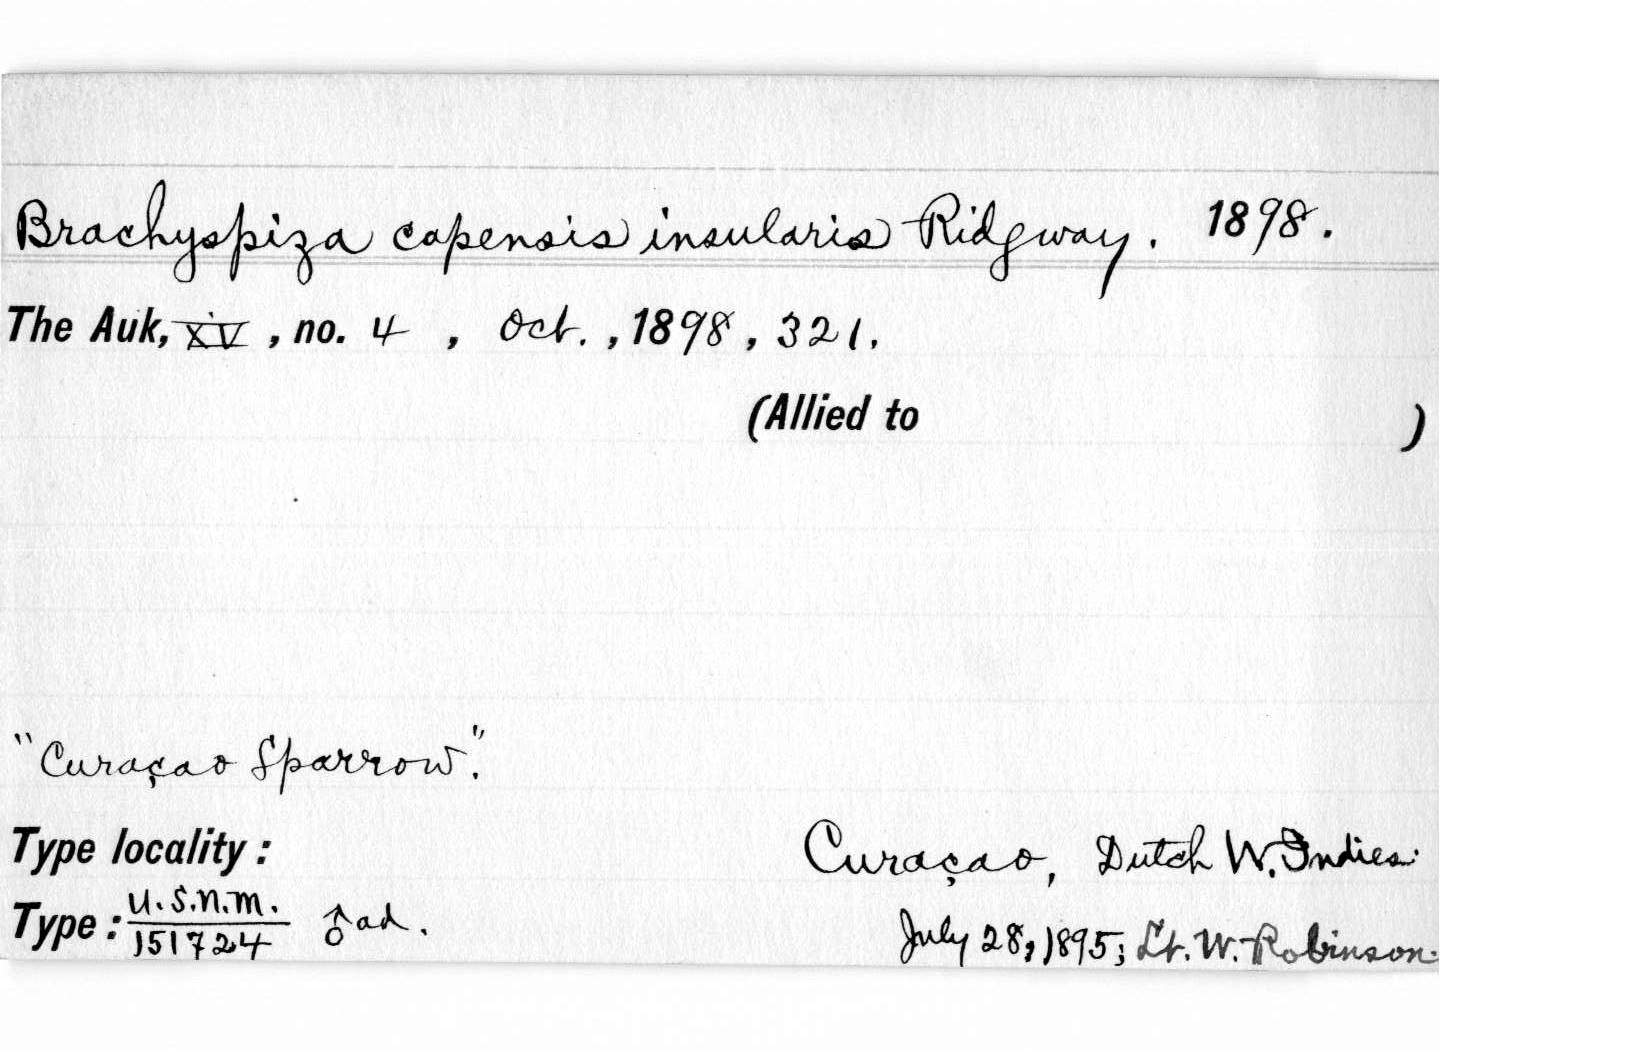 Brachyspiza capensis insularis Ridgway. 1898.
The Auk, XV, no. 4, Oct., 1898, 321.
(Allied to )
"Curaçao Sparrow".
Type locality: Curaçao, Dutch W. Indies.
Type: U.S.N.M. 151724 ♂ ad. July 28, 1895; Lt. W. Robinson.